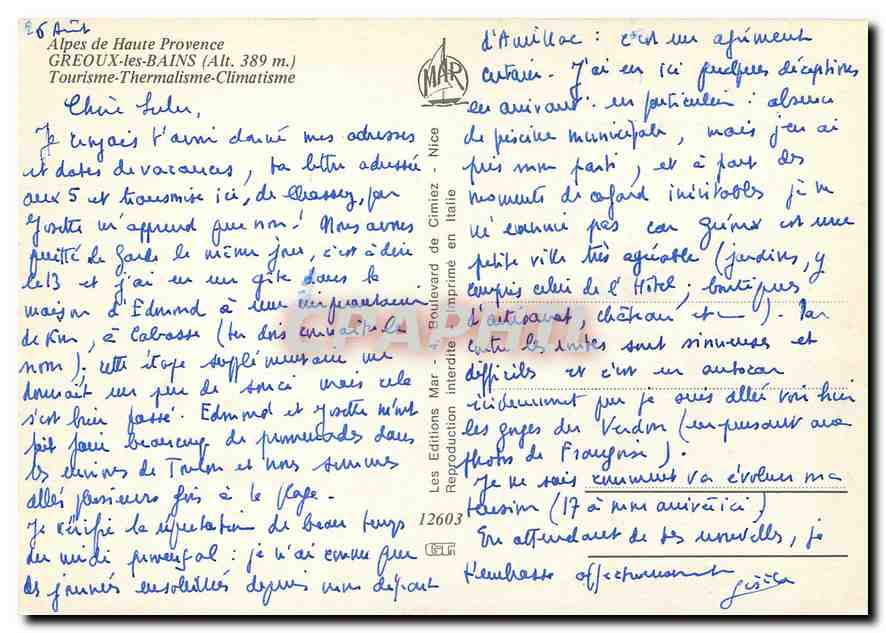 26 Août
Alpes de Haute Provence
GREOUX-les-BAINS (Alt. 389 m.)
Tourisme-Thermalisme-Climatisme
Chère
Je croyais t'avoir donné mes adresses
et dates de vacances, ta lettre adressée
aux 5 et transmise ici, de Chassey, par
Josette m'apprend que non! Nous avons
quitté la Garde le même jour, c'est à dire
le 13 et j'ai eu un gîte dans la
maison d'Edmond à une cinquantaine
de Km, à Cabasse (tu dois connaître le
nom). cette étape supplémentaire me
donnait un peu de souci mais cela
s'est bien passé. Edmond et Josette m'ont
fait faire beaucoup de promenades dans
les environs de Toulon et nous sommes
allés plusieurs fois à la plage.
Je vérifie la réputation de beau temps
du midi provençal : je n'ai connu que
des journées ensoleillées depuis mon départ
d'Amillac : c'est un agrément
certain. J'ai eu ici quelques déceptions
en arrivant : en particulier : absence
de piscine municipale, mais j'en ai
pris mon parti, et à part des
moments de cafard inévitables je ne
m'ennuie pas car Gréoux est une
petite ville très agréable (jardins, y
compris celui de l'Hôtel ; boutiques
d'artisanat, château etc). Par
contre les routes sont sinueuses et
difficiles et c'est en autocar
évidemment que je suis allée voir hier
les gorges du Verdon (en pensant aux
photos de Françoise).
Je ne sais comment va évoluer ma
tension (17 à mon arrivée ici)
En attendant de tes nouvelles, je
t'embrasse affectueusement
MAR
Les Editions Mar - Boulevard de Cimiez - Nice
Reproduction interdite Imprimé en Italie
12603
CPARAMA